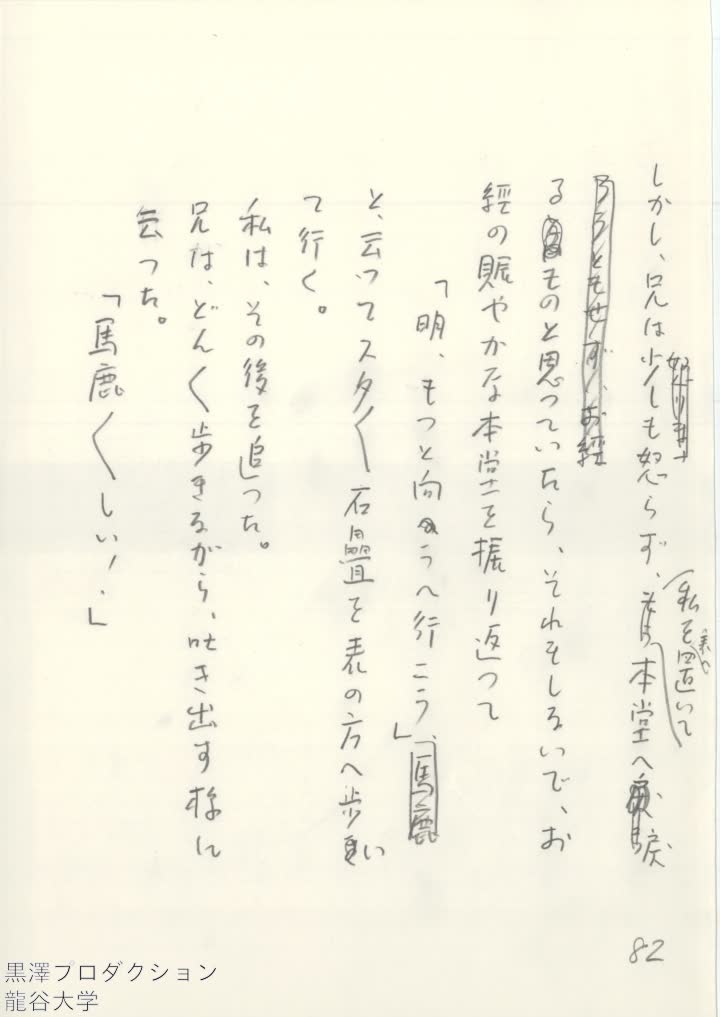 しかし、兄は少しも怒らず、私を置いて本堂へ戻
るものと思っていたら、それもしないで、お
経の賑やかな本堂を振り返つて
「明、もつと向うへ行こう」
と、云つてスタ〱石畳を表の方へ歩い
て行く。
私は、その後を追つた。
兄は、どん〱歩きながら、吐き出す様に
云つた。
「馬鹿〱しい！」
82
黒澤プロダクション
龍谷大学